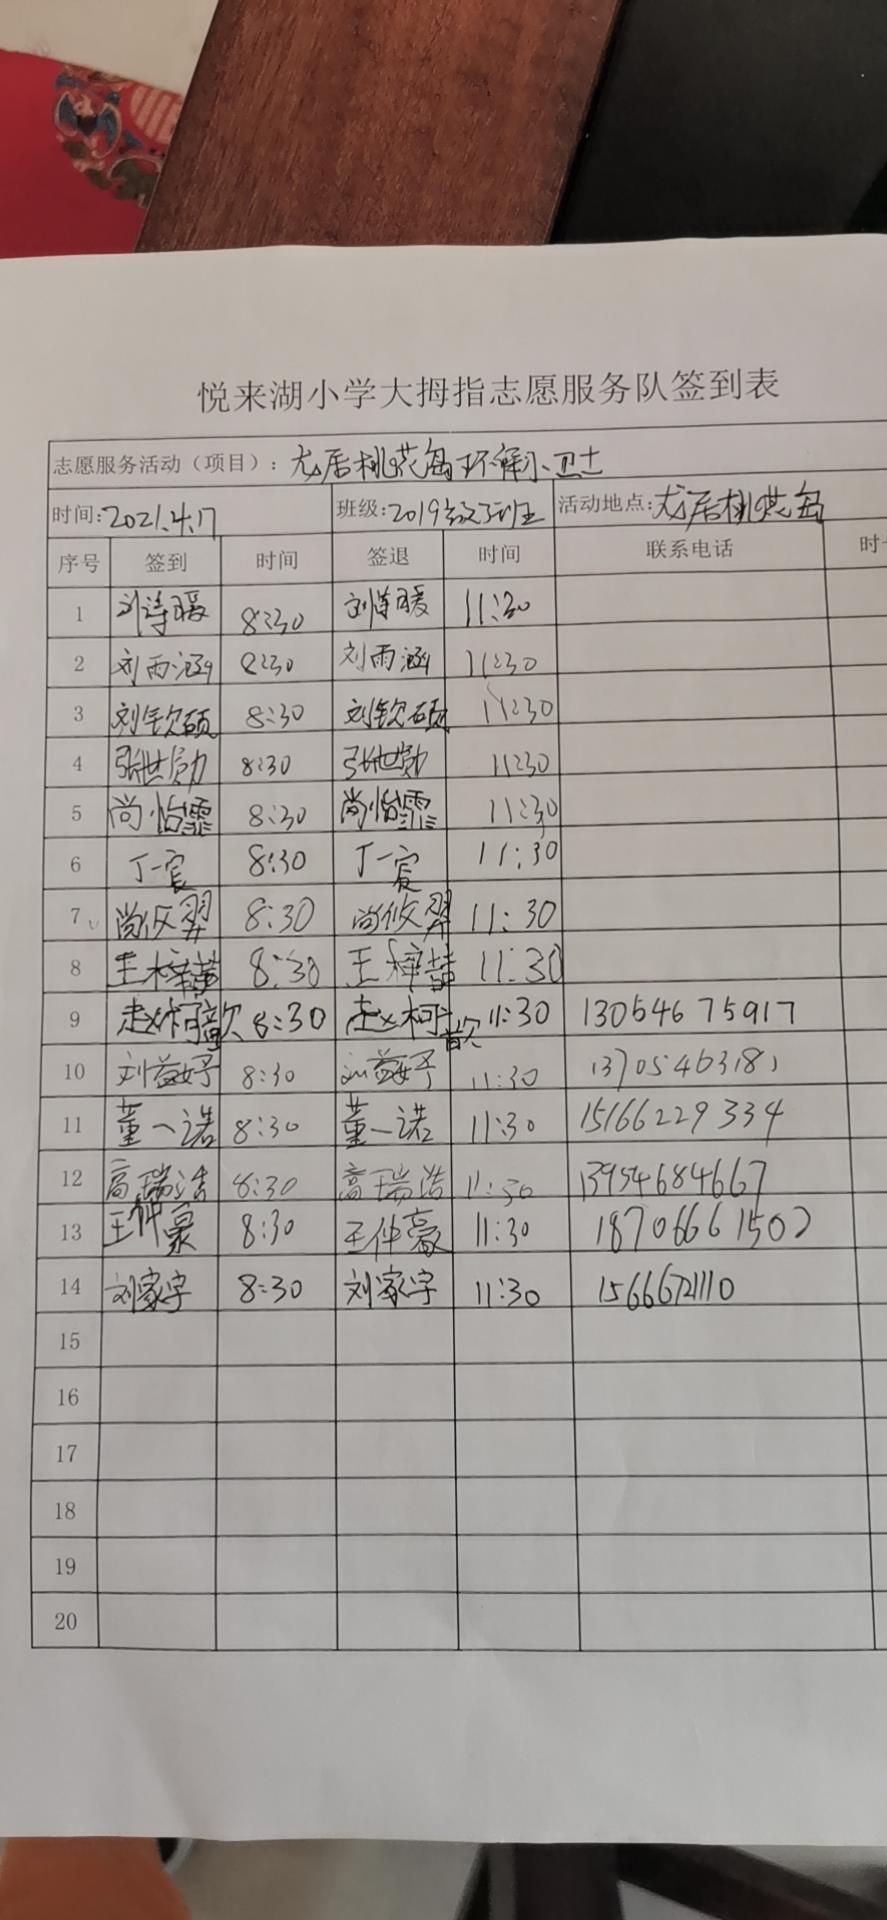 悦来湖小学大拇指志愿服务队签到表
志愿服务活动（项目）：龙居桃花岛环保小卫士
时间:2021.4.17 班级:2019级3班 活动地点:龙居桃花岛
序号 签到 时间 签退 时间 联系电话 时
1 刘诗暖 8:30 刘诗暖 11:30
2 刘雨涵 8:30 刘雨涵 11:30
3 刘钦硕 8:30 刘钦硕 11:30
4 张世勋 8:30 张世勋 11:30
5 尚怡霏 8:30 尚怡霏 11:30
6 丁一宸 8:30 丁一宸 11:30
7 尚攸羿 8:30 尚攸羿 11:30
8 王梓 8:30 王梓 11:30
9 赵柯歆 8:30 赵柯歆 11:30 13054675917
10 刘益妤 8:30 刘益妤 11:30 13705463181
11 董一诺 8:30 董一诺 11:30 15166229334
12 高瑞浩 8:30 高瑞浩 11:30 13954684667
13 王仲豪 8:30 王仲豪 11:30 18706661502
14 刘家宇 8:30 刘家宇 11:30 15666721110
15
16
17
18
19
20